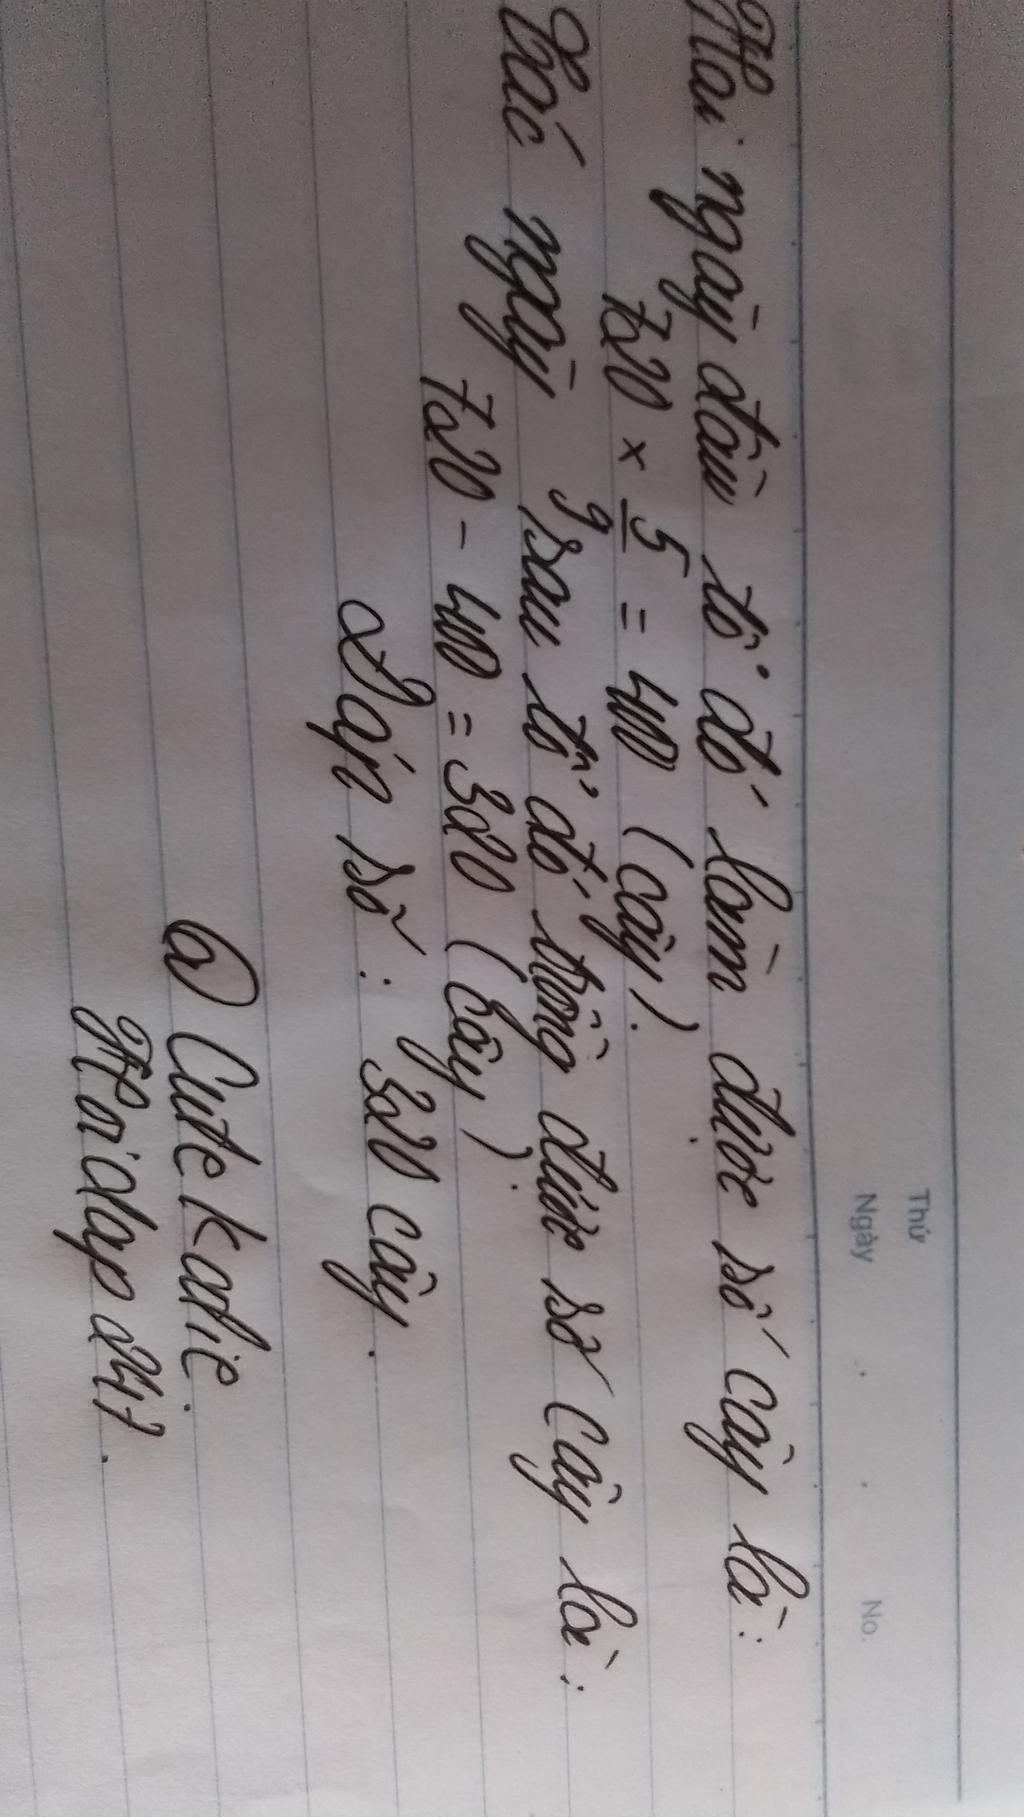 Thứ
Ngày
No.
Hai ngày đầu tổ đó làm được số cây là:
720 × 5/9 = 400 (cây).
Các ngày sau tổ đó trồng được số cây là:
720 - 400 = 320 (cây).
Đáp số: 320 cây.
@ Cute kadie.
Hoidap 247.